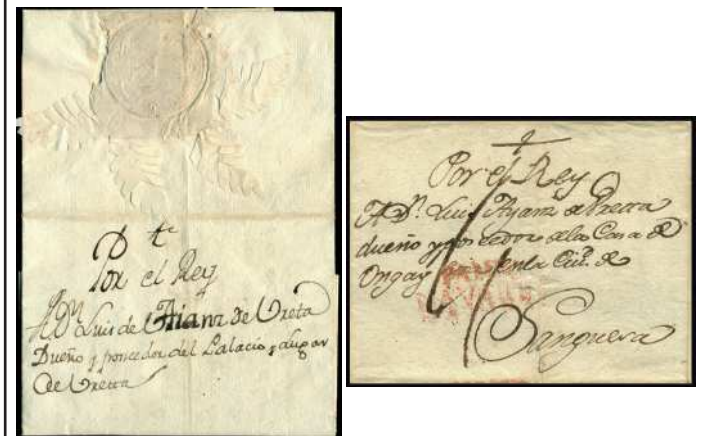 Por el Rey
A Dn Luis de Aianz de Ureta
Dueño y poncedor del Palacio, y Lugar
de Uretta
Por el Rey
A Dn. Luis Ayanz de Uretta
dueño y poncedor de la Casa de
Ongay en la Ciud. de
NAVARRA
Sanguesa